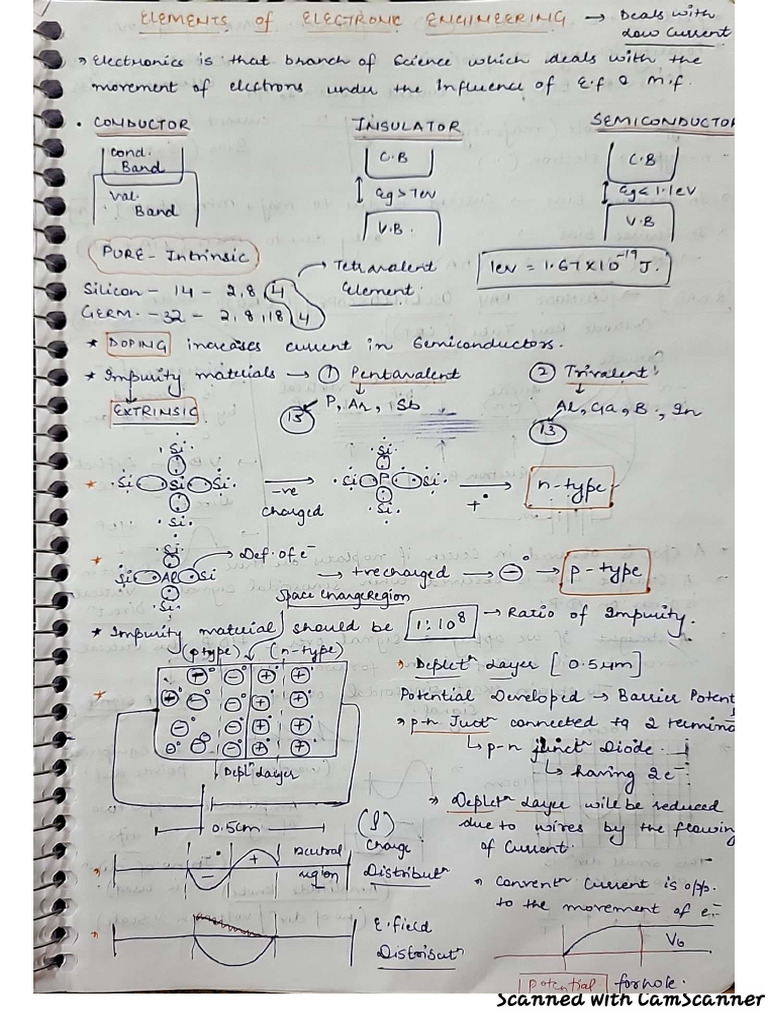 ELEMENTS of ELECTRONIC ENGINEERING → Deals with
Low Current
→ Electronics is that branch of Science which deals with the
movement of elctrons under the Influence of E.f & m.f.
• CONDUCTOR INSULATOR SEMICONDUCTOR
Cond. Band C.B C.B
Eg > 7ev Eg < 1.1ev
Val. Band V.B. V.B
PURE - Intrinsic → Tetravalent
Element. 1ev = 1.67 × 10⁻¹⁹ J.
Silicon - 14 - 2,8,4
GERM. - 32 - 2,8,18,4
* DOPING increases current in Semiconductors.
* Impurity materials → ① Pentavalent ② Trivalent
EXTRINSIC 15 P, Ar, Sb 13 Al, Ga, B, In
Si Si
* Si Si Si → -ve charged Si P Si → +° n-type
Si Si
Si → Def. of e⁻
* Si Al Si → +ve charged → -° → p-type
Si
Space Charge Region
* Impurity material should be 1:10⁸ → Ratio of Impurity.
(p type) (n-type)
→ Deplet^n Layer [0.5μm]
Potential Developed → Barrier Potent
→ p-n Junct^n connected to 2 termina
↳ p-n junct^n Diode.
↳ having 2e⁻
Depl^n Layer
0.5cm
→ Deplet^n Layer will be reduced
due to wires by the flowing
of Current.
(ρ)
Charge
Distribut^n
- + Neutral
region
→ Convent^n Current is opp.
to the movement of e⁻.
E. field
Distribut^n
V₀
Potential for hole.
Scanned with CamScanner